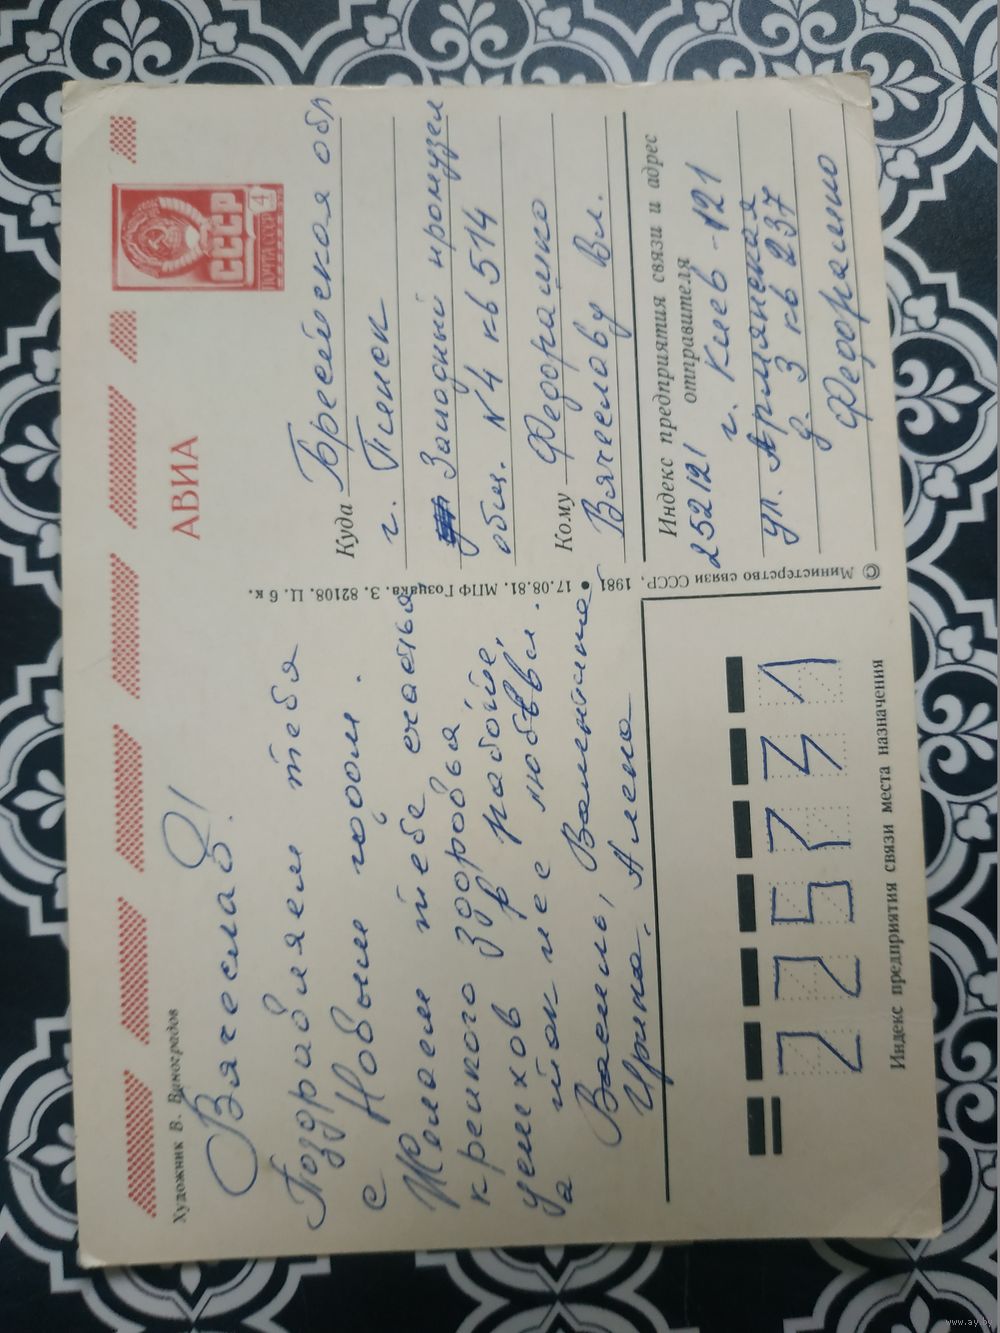 Художник В. Виноградов
АВИА
ПОЧТА СССР
СССР
4
Вячеслав!
Поздравляем тебя
с Новым годом.
Желаем тебе счастья
крепкого здоровья
успехов в работе,
а также с любови.
Василь, Валентина
Ирина. Алена
17.08.81. МПФ Гознака. З. 82108. Ц. 6 к.
© Министерство связи СССР, 1981
Куда Брестская обл
г. Пинск
Западный промузел
общ. N4 кв 514
Кому Федорашко
Вячеславу Вл.
Индекс предприятия связи и адрес
отправителя
252121 г. Киев-121
ул. Армянская
д. 3 кв 237
Федорашко
225731
Индекс предприятия связи места назначения
www.ay.by